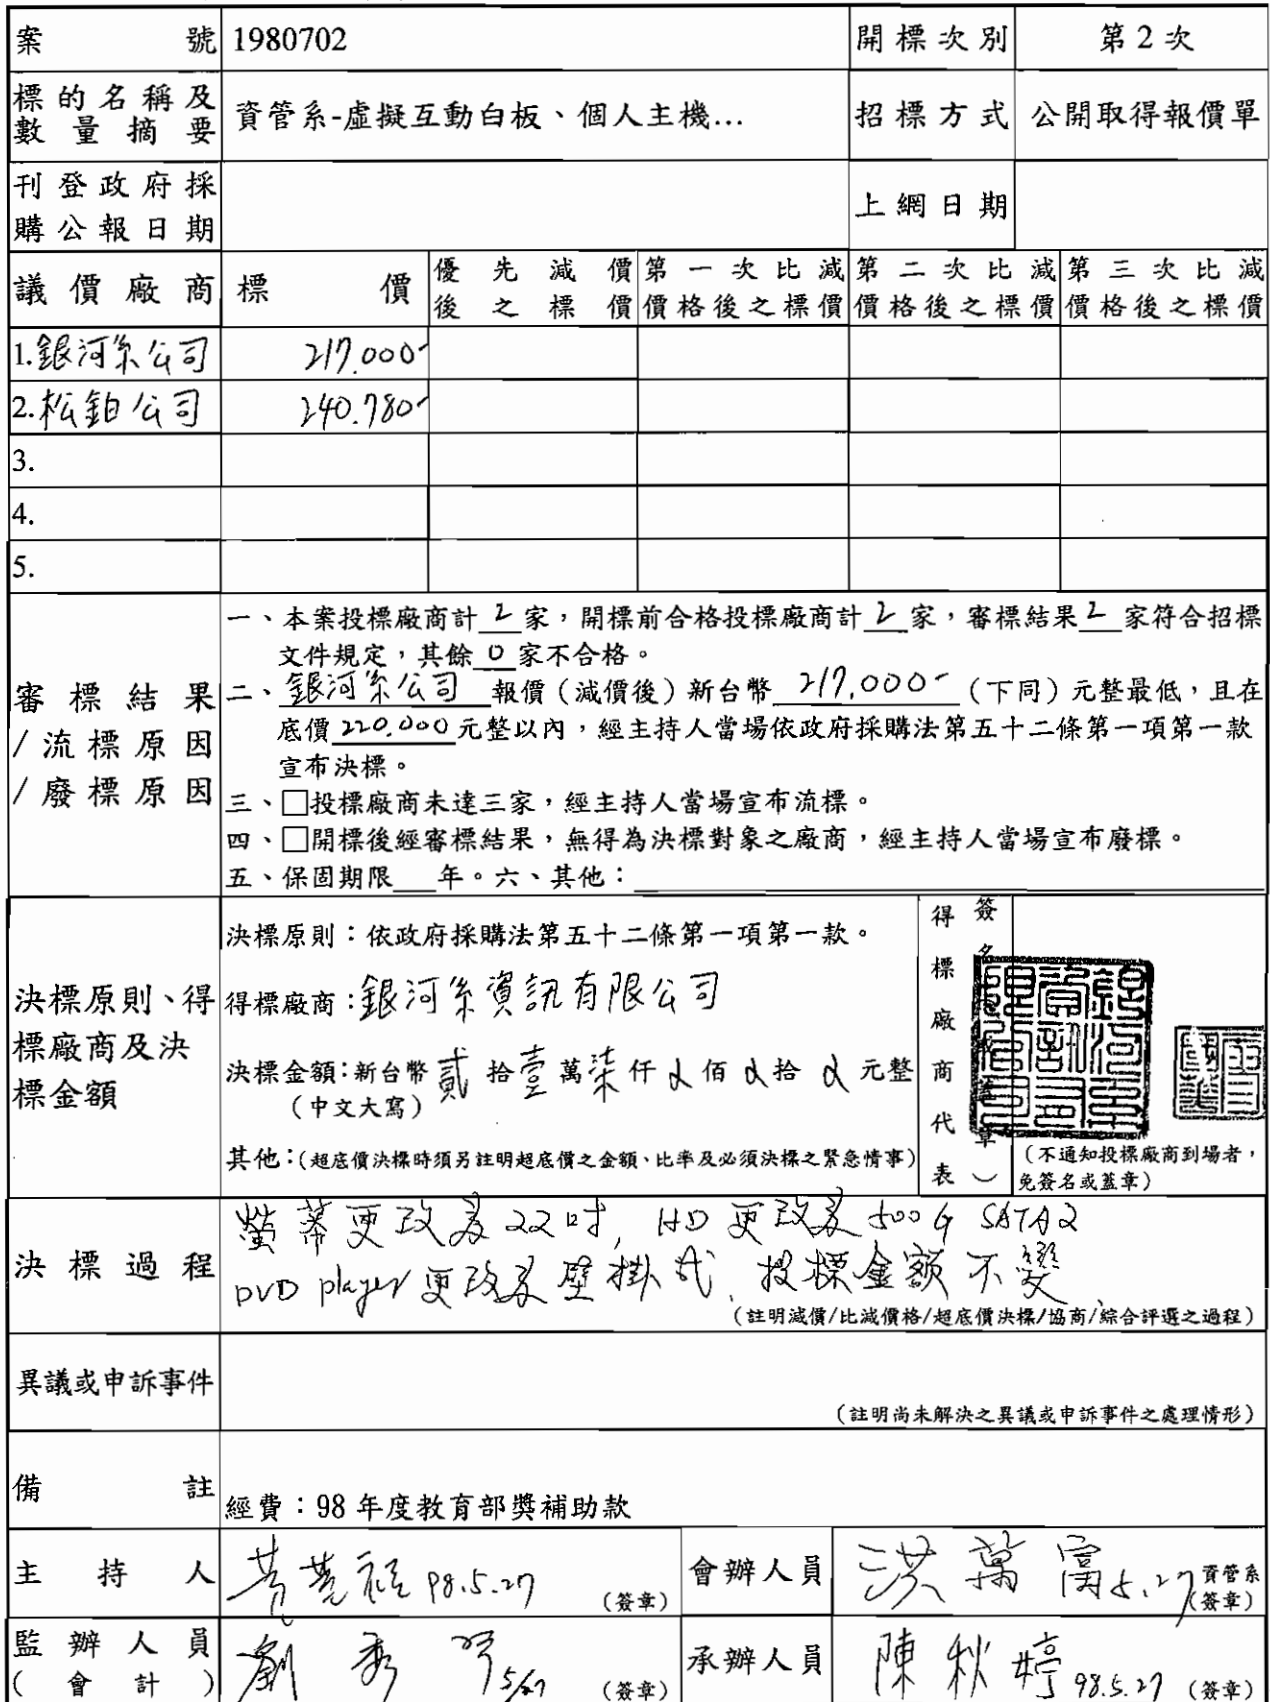 案號 1980702 開標次別 第2次
標的名稱及數量摘要 資管系-虛擬互動白板、個人主機... 招標方式 公開取得報價單
刊登政府採購公報日期 上網日期
議價廠商 標價 優先減價後之標價 第一次比減價格後之標價 第二次比減價格後之標價 第三次比減價格後之標價
1.銀河系公司 217.000-
2.松鉑公司 240.780-
3.
4.
5.
審標結果/流標原因/廢標原因
一、本案投標廠商計 2 家,開標前合格投標廠商計 2 家,審標結果 2 家符合招標
文件規定,其餘 0 家不合格。
二、銀河系公司 報價(減價後)新台幣 217.000- (下同)元整最低,且在
底價 220.000 元整以內,經主持人當場依政府採購法第五十二條第一項第一款
宣布決標。
三、□投標廠商未達三家,經主持人當場宣布流標。
四、□開標後經審標結果,無得為決標對象之廠商,經主持人當場宣布廢標。
五、保固期限___年。六、其他:
決標原則、得標廠商及決標金額
決標原則:依政府採購法第五十二條第一項第一款。
得標廠商:銀河系資訊有限公司
決標金額:新台幣 貳 拾 壹 萬 柒 仟 佰 拾 元整
(中文大寫)
其他:(超底價決標時須另註明超底價之金額、比率及必須決標之緊急情事)
得標廠商代表
簽名 章)
(不通知投標廠商到場者,
免簽名或蓋章)
決標過程
螢幕更改為22吋, HD 更改為 500G SATA2
DVD player 更改為壁掛式、投標金額不變、
(註明減價/比減價格/超底價決標/協商/綜合評選之過程)
異議或申訴事件
(註明尚未解決之異議或申訴事件之處理情形)
備註 經費:98年度教育部獎補助款
主持人 98.5.27 (簽章) 會辦人員 洪萬富 5.27 資管系(簽章)
監辦人員(會計) 劉秀 5/27 (簽章) 承辦人員 陳秋婷 98.5.27 (簽章)